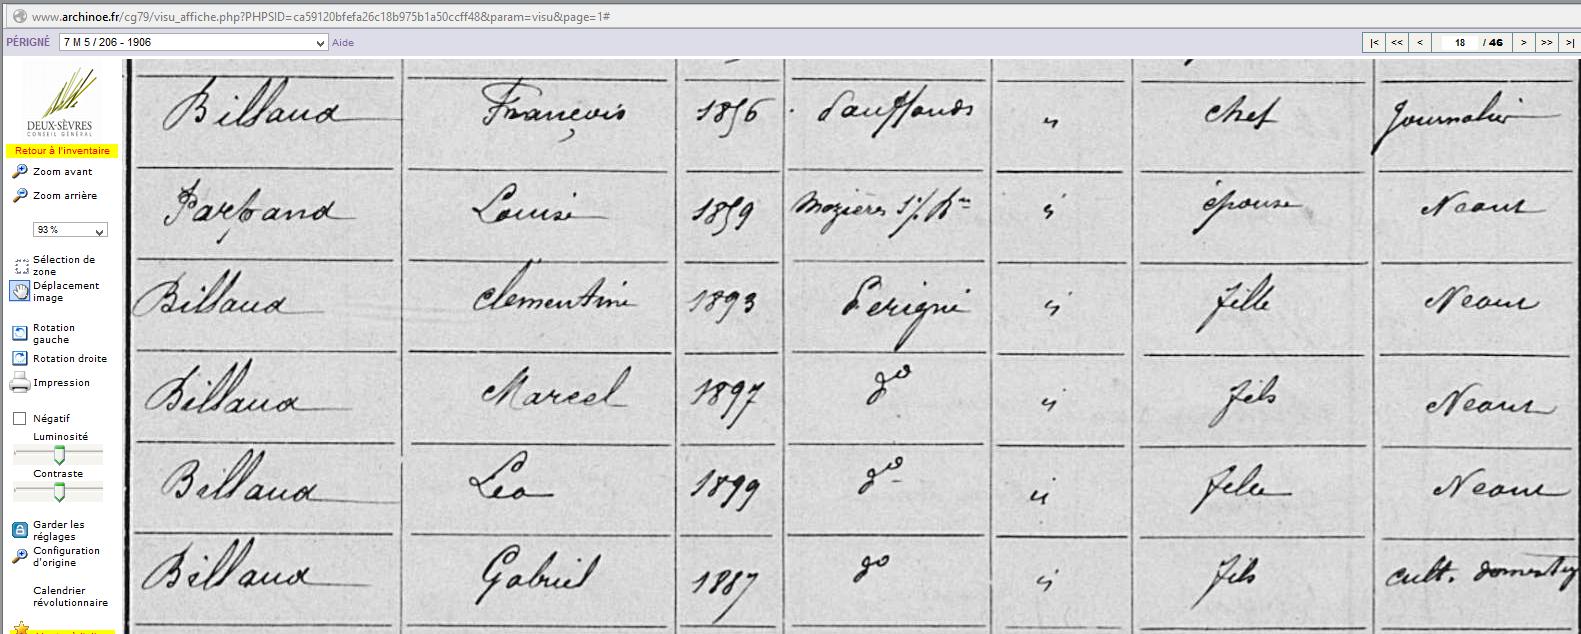 www.archinoe.fr/cg79/visu_affiche.php?PHPSID=ca59120bfefa26c18b975b1a50ccff48&param=visu&page=1#
PÉRIGNÉ 7 M 5 / 206 - 1906 Aide |< << < 18 / 46 > >> >|
DEUX-SÈVRES
CONSEIL GÉNÉRAL
Retour à l'inventaire
Zoom avant
Zoom arrière
93 %
Sélection de
zone
Déplacement
image
Rotation
gauche
Rotation droite
Impression
Négatif
Luminosité
Contraste
Garder les
réglages
Configuration
d'origine
Calendrier
révolutionnaire
Billaud François 1856 " chef Journalier
Louise 1859 Mazières " épouse Neant
Billaud Clementine 1893 Perigné " fille Neant
Billaud Marcel 1897 do " fils Neant
Billaud Lea 1899 do " fille Neant
Billaud Gabriel 1887 do " fils cult. domestiq